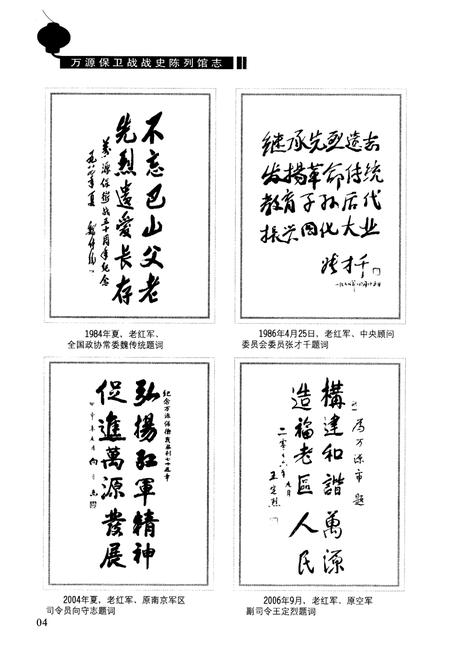 万源保卫战战史陈列馆志
不忘巴山父老
先烈遗爱长存
万源保卫战五十周年纪念
一九八四年夏
魏传统
1984年夏，老红军、
全国政协常委魏传统题词
继承先烈遗志
发扬革命传统
教育子孙后代
振兴四化大业
张才千
1986年4月25日，老红军、中央顾问
委员会委员张才千题词
纪念万源保卫战胜利七十周年
弘揚紅軍精神
促進萬源發展
向守志
2004年夏，老红军、原南京军区
司令员向守志题词
为万源市题
構建和諧萬源
造福老區人民
二零零六年九月
王定烈
2006年9月，老红军、原空军
副司令王定烈题词
04